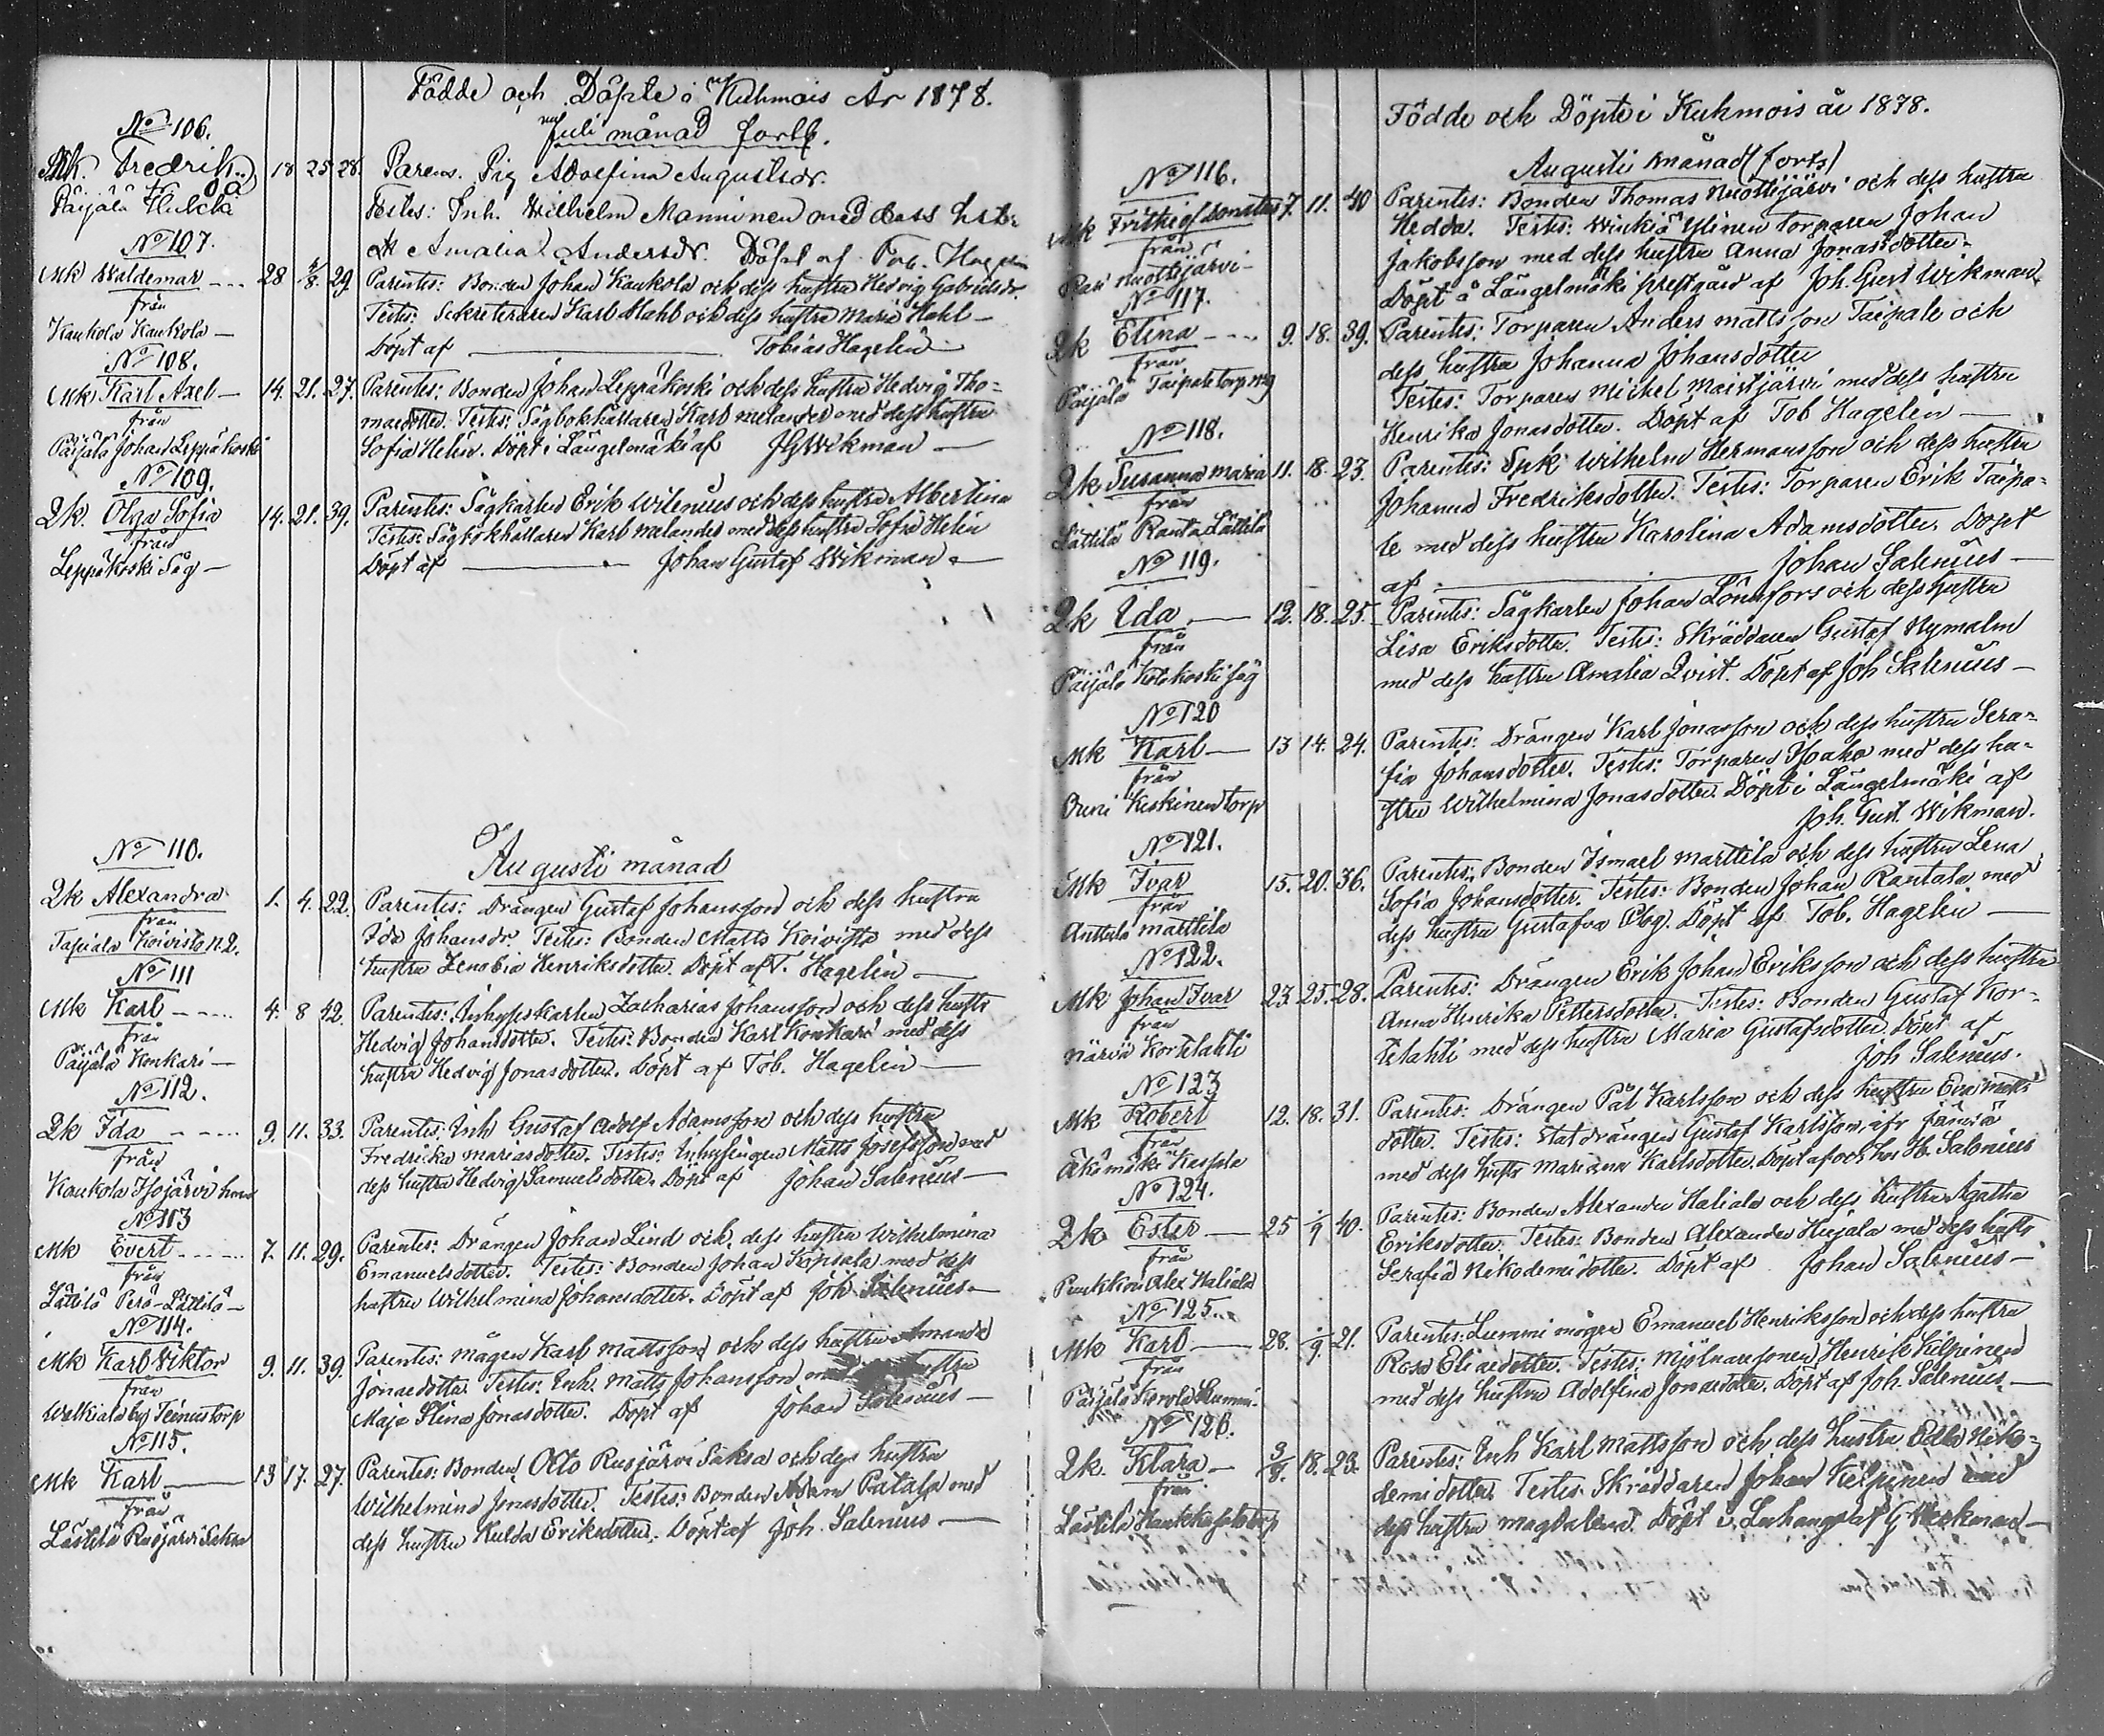 Födde och Döpte i Kuhmois År 1878.
Juli månad forts.
No 106.
Mk. Fredrik 18 25 28. Parens. Pig Adolfina Augustsdr.
Päijälä
Testes: Inh. Wilhelm Manninen med dess hstr.
Amalia Andersdr. Döpt af Tob. Hagelin
No 107.
Mk Waldemar 28 4/8. 29. Parentes: Bonden Johan Kaukola och dess hustru Hedvig Gabrielsdr.
från
Testes: Sekreteraren Karl Stahl och dess hustru Maria Stahl
Kaukola Kaukola
Döpt af Tobias Hagelin
No 108.
Mk Karl Axel 14. 21. 27. Parentes: Bonden Johan Leppäkoski och dess hustru Hedvig Tho-
från
masdotter. Testes: Sågbokhållaren Karl Melander med dess hustru
Päijälä Johan Leppäkoski
Sofia Helin. Döpt i Längelmäki af JGWikman
No 109.
Qk. Olga Sofia 14. 21. 39. Parentes: Sågkarlen Erik Wilenius och dess hustru Albertina
från
Testes: Sågbokhållaren Karl Melander med dess hustru Sofia Helin
Leppäkoski Såg
Döpt af Johan Gustaf Wikman
Augusti månad
No 110.
Qk Alexandra 1. 4. 22. Parentes: Drängen Gustaf Johansson och dess hustru
från
Ida Johansdr. Testes: Bonden Matts Koivisto med dess
Tapiala Koivisto N.2.
hustru Zenobia Henriksdotter. Döpt af T. Hagelin
No 111
Mk Karl 4. 8 42. Parentes: Inhyseskarlen Zacharias Johansson och dess hustr
från
Hedvig Johansdotter. Testes: Bonden Karl Konkari med dess
Päijälä Konkari
hustru Hedvig Jonasdotter. Döpt af Tob. Hagelin
No 112.
Qk Ida 9. 11. 33. Parentes: Inh Gustaf Adolf Adamsson och dess hustru
från
Fredrika Mariasdotter. Testes: Inhysingen Matts Josefsson med
Kaukola Isojärvi
dess hustru Hedvig Samuelsdotter. Döpt af Johan Salenius
No 113
Mk Evert 7. 11. 29. Parentes: Drängen Johan Lind och dess hustru Wilhelmina
från
Emanuelsdotter. Testes: Bonden Johan Köpsala med dess
Lättilä Perä-Lättilä
hustru Wilhelmina Johansdotter. Döpt af Joh Salenius
No 114.
Mk Karl Viktor 9. 11. 39. Parentes: Mågen Karl Mattsson och dess hustru Amanda
från
Jonasdotter. Testes: Inh. Matts Johansson med hustru
by torp
Maja Stina Jonasdotter. Döpt af Johan Salenius
No 115.
Mk Karl 13 17. 27. Parentes: Bonden Otto Rusjärvi Saksa och dess hustru
från
Wilhelmina Jonasdotter. Testes: Bonden Adam Patala med
Lästilä Rusjärvi Saksa
dess hustru Hulda Eriksdotter. Döpt af Joh. Salenius
Födde och Döpte i Kuhmois år 1878.
Augusti månad (forts)
No 116.
Mk Frithiof Donatus 7. 11. 40 Parentes: Bonden Thomas Nuottijärvi och dess hustru
från
Hedda. Testes: Winkiä Ylinen torparen Johan
Pasi Nuottijärvi
Jakobsson med dess hustru Anna Jonasdotter.
Döpt å Längelmäki prestgård af Joh. Gust Wikman.
No 117.
Qk Elina 9. 18. 39. Parentes: Torparen Anders Mattsson Taipale och
från
dess hustru Johanna Johansdotter
Päijälä Taipale torp
Testes: Torparen Mickel Maistjärvi med dess hustru
Henrika Jonasdotter. Döpt af Tob Hagelin
No 118.
Qk Susanna Maria 11. 18. 23. Parentes: Spk Wilhelm Hermansson och dess hustru
från
Johanna Fredriksdotter. Testes: Torparen Erik Taipa-
Lättilä Ranta Lättilä
le med dess hustru Karolina Adamsdotter. Döpt
af Johan Salenius
No 119.
Qk Ida 12. 18. 25. Parentes: Sågkarlen Johan Lönnfors och dess hustru
från
Lisa Eriksdotter. Testes: Skräddaren Gustaf Nymalm
Päijälä såg
med dess hustru Amalia Qvist. Döpt af Joh Salenius
No 120
Mk Karl 13 14. 24. Parentes: Drängen Karl Jonasson och dess hustru Sera-
från
fia Johansdotter. Testes: Torparen Isoaho med dess hu-
Ouni Keskinen torp
stru Wilhelmina Jonasdotter. Döpt i Längelmäki af
Joh. Gust. Wikman.
No 121.
Mk Ivar 15. 20. 36. Parentes: Bonden Ismael Marttila och dess hustru Lena
från
Sofia Johansdotter. Testes: Bonden Johan Rantala med
Anttula Marttila
dess hustru Gustafva Döpt af Tob. Hagelin
No 122.
Mk Johan Ivar 23. 25. 28. Parentes: Drängen Erik Johan Eriksson och dess hustru
från
Anna Henrika Pettersdotter. Testes: Bonden Gustaf Kor-
Närvä Kortelahti
telahti med dess hustru Maria Gustafsdotter. Döpt af
Joh Salenius.
No 123
Mk Robert 12. 18. 31. Parentes: Drängen Pål Karlsson och dess hustru Eva Matts
från
dotter. Testes: Statdrängen Gustaf Karlsson ifr Jämsä
med dess hustr Mariana Karlsdotter. Döpt af Salonius
No 124.
Qk Ester 25 1/9 40. Parentes: Bonden Alexander Haliala och dess hustru Agatha
från
Eriksdotter. Testes: Bonden Alexander Hujala med dess hustr
Puukkoi Alex Haliala
Serafia Nikodemidotter. Döpt af Johan Salenius
No 125.
Mk Karl 28. 1/9. 21. Parentes: Lummi mågen Emanuel Henriksson och dess hustru
från
Rosa Eliaedotter. Testes: Mjölnaresonen Henrik Kilpinen
Päijälä Lummi
med dess hustru Adolfina Jonasdotter. Döpt af Joh. Salenius
No 126.
Qk. Klara 3/8. 18. 23. Parentes: Inh Karl Mattsson och dess hustru Edla Niko-
från
demidotter. Testes: Skräddaren Johan Kilpinen med
dess hustru Magdalena. Döpt i Luhanga af G Weckman